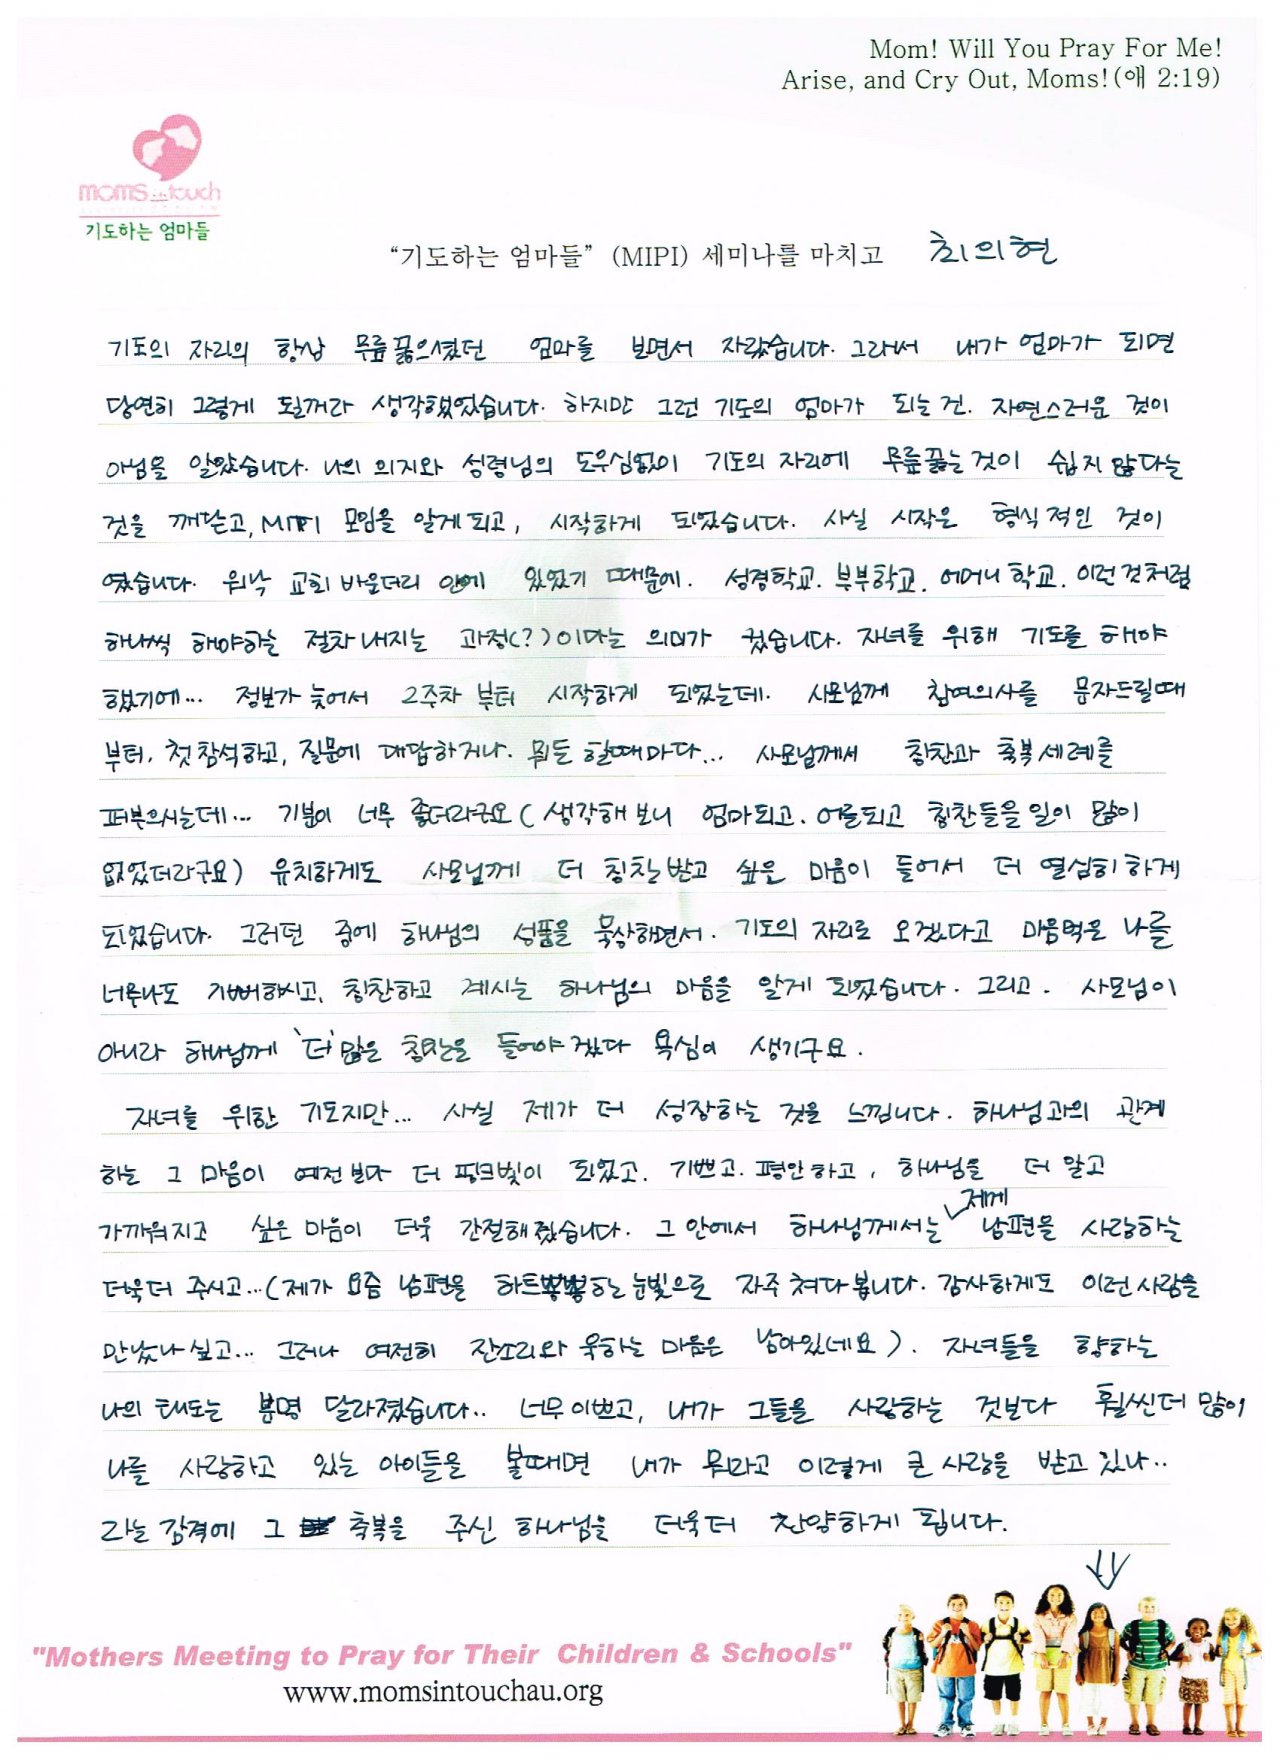 Mom! Will You Pray For Me!
Arise, and Cry Out, Moms!(애 2:19)
moms in touch
기도하는 엄마들
“기도하는 엄마들” (MIPI) 세미나를 마치고 최의현
기도의 자리의 항상 무릎꿇으셨던 엄마를 보면서 자랐습니다. 그래서 내가 엄마가 되면
당연히 그렇게 될꺼라 생각했었습니다. 하지만 그런 기도의 엄마가 되는건. 자연스러운 것이
아님을 알았습니다. 나의 의지와 성령님의 도우심없이 기도의 자리에 무릎꿇는것이 쉽지 않다는
것을 깨닫고, MIPI 모임을 알게되고, 시작하게 되었습니다. 사실 시작은 형식적인 것이
였습니다. 워낙 교회 바운더리 안에 있었기 때문에. 성경학교. 부부학교. 어머니학교. 이런것처럼
하나씩 해야하는 절차내지는 과정(?)이다는 의미가 컸습니다. 자녀를 위해 기도를 해야
했기에... 정보가 늦어서 2주차 부터 시작하게 되었는데. 사모님께 참여의사를 문자드릴때
부터. 첫참석하고, 질문에 대답하거나. 뭐든 할때마다... 사모님께서 칭찬과 축복세례를
퍼부으시는데... 기분이 너무 좋더라구요 (생각해보니 엄마되고. 어른되고 칭찬들을일이 많이
없었더라구요) 유치하게도 사모님께 더 칭찬받고 싶은 마음이 들어서 더 열심히하게
되었습니다. 그러던 중에 하나님의 성품을 묵상하면서. 기도의 자리로 오겠다고 마음먹은 나를
너무나도 기뻐하시고, 칭찬하고 계시는 하나님의 마음을 알게 되었습니다. 그리고. 사모님이
아니라 하나님께 '더' 많은 칭찬을 들어야겠다 욕심이 생기구요.
자녀를 위한 기도지만... 사실 제가 더 성장하는 것을 느낍니다. 하나님과의 관계
하는 그 마음이 예전보다 더 핑크빛이 되었고. 기쁘고. 평안하고, 하나님을 더 알고
가까워지고 싶은 마음이 더욱 간절해졌습니다. 그안에서 하나님께서는 제게 남편을 사랑하는
더욱더 주시고...(제가 요즘 남편을 하트뿅뿅하는눈빛으로 자주 쳐다봅니다. 감사하게도 이런 사람을
만났나 싶고... 그러나 여전히 잔소리와 욱하는 마음은 남아있네요). 자녀들을 향하는
나의 태도는 분명 달라졌습니다.. 너무이쁘고, 내가 그들을 사랑하는 것보다 훨씬더 많이
나를 사랑하고 있는 아이들을 볼때면 내가 뭐라고 이렇게 큰 사랑을 받고 있나..
라는 감격에 그 축복을 주신 하나님을 더욱더 찬양하게 됩니다.
"Mothers Meeting to Pray for Their Children & Schools"
www.momsintouchau.org